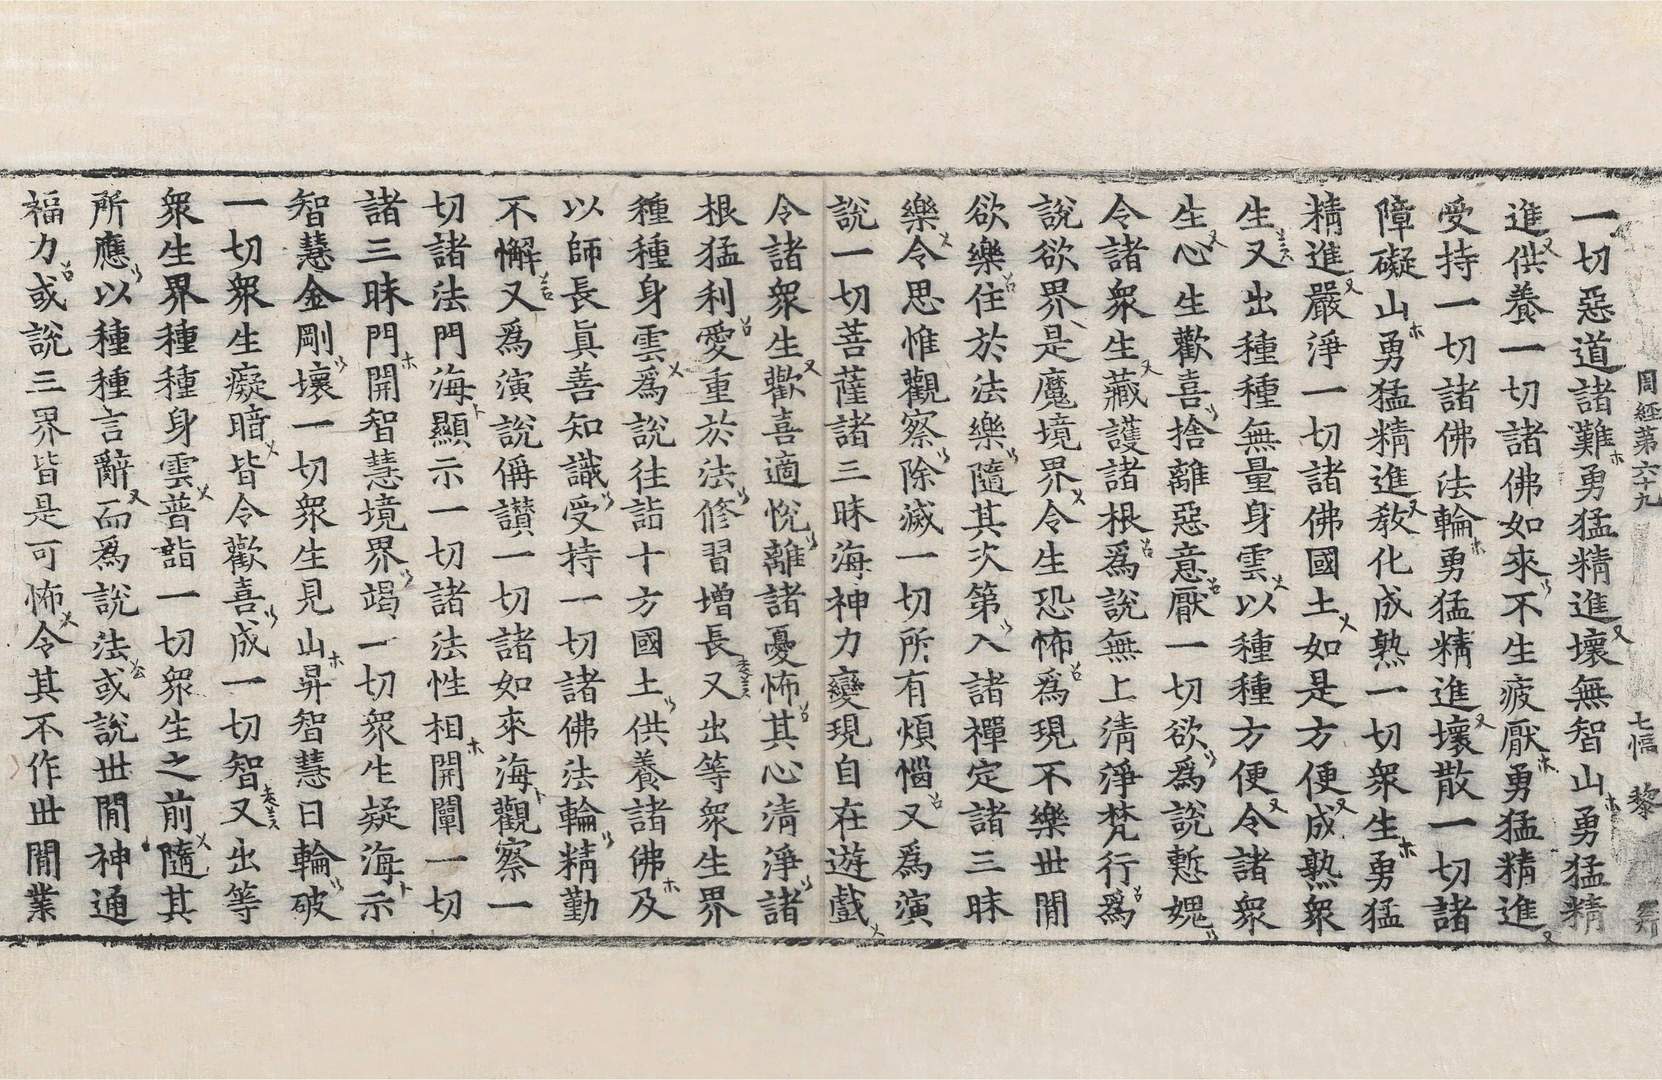 周經第六十九 七幅 黎
一切惡道諸難勇猛精進壞無智山勇猛精
進供養一切諸佛如來不生疲厭勇猛精進
受持一切諸佛法輪勇猛精進壞散一切諸
障礙山勇猛精進教化成熟一切衆生勇猛
精進嚴淨一切諸佛國土如是方便成熟衆
生又出種種無量身雲以種種方便令諸衆
生心生歡喜捨離惡意厭一切欲爲說慙媿
令諸衆生藏護諸根爲說無上清淨梵行爲
說欲界是魔境界令生恐怖爲現不樂世閒
欲樂住於法樂隨其次第入諸禪定諸三昧
樂令思惟觀察除滅一切所有煩惱又爲演
說一切菩薩諸三昧海神力變現自在遊戲
令諸衆生歡喜適悅離諸憂怖其心清淨諸
根猛利愛重於法修習增長又出等衆生界
種種身雲爲說往詣十方國土供養諸佛及
以師長眞善知識受持一切諸佛法輪精勤
不懈又爲演說稱讚一切諸如來海觀察一
切諸法門海顯示一切諸法性相開闡一切
諸三昧門開智慧境界竭一切衆生疑海示
智慧金剛壞一切衆生見山昇智慧日輪破
一切衆生癡暗皆令歡喜成一切智又出等
衆生界種種身雲普詣一切衆生之前隨其
所應以種種言辭而爲說法或說世閒神通
福力或說三界皆是可怖令其不作世閒業